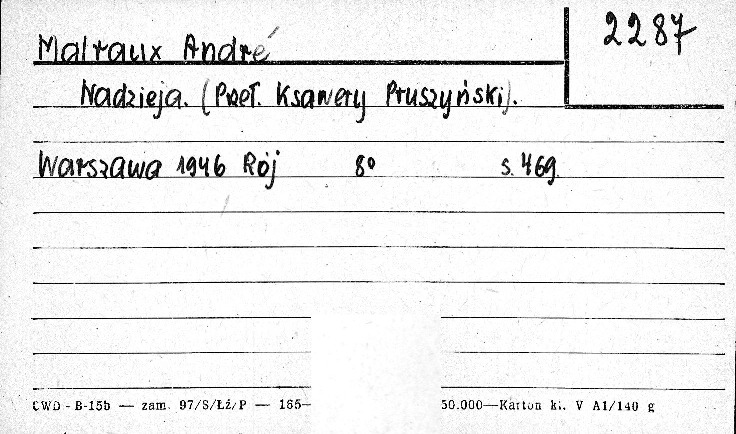 2287
Malraux André
Nadzieja. (Przeł. Ksawery Pruszyński).
Warszawa 1946 Rój 8º s. 469.
CWD - B-15b — zam. 97/S/Łź/P — 165— 50.000—Karton kl. V A1/140 g